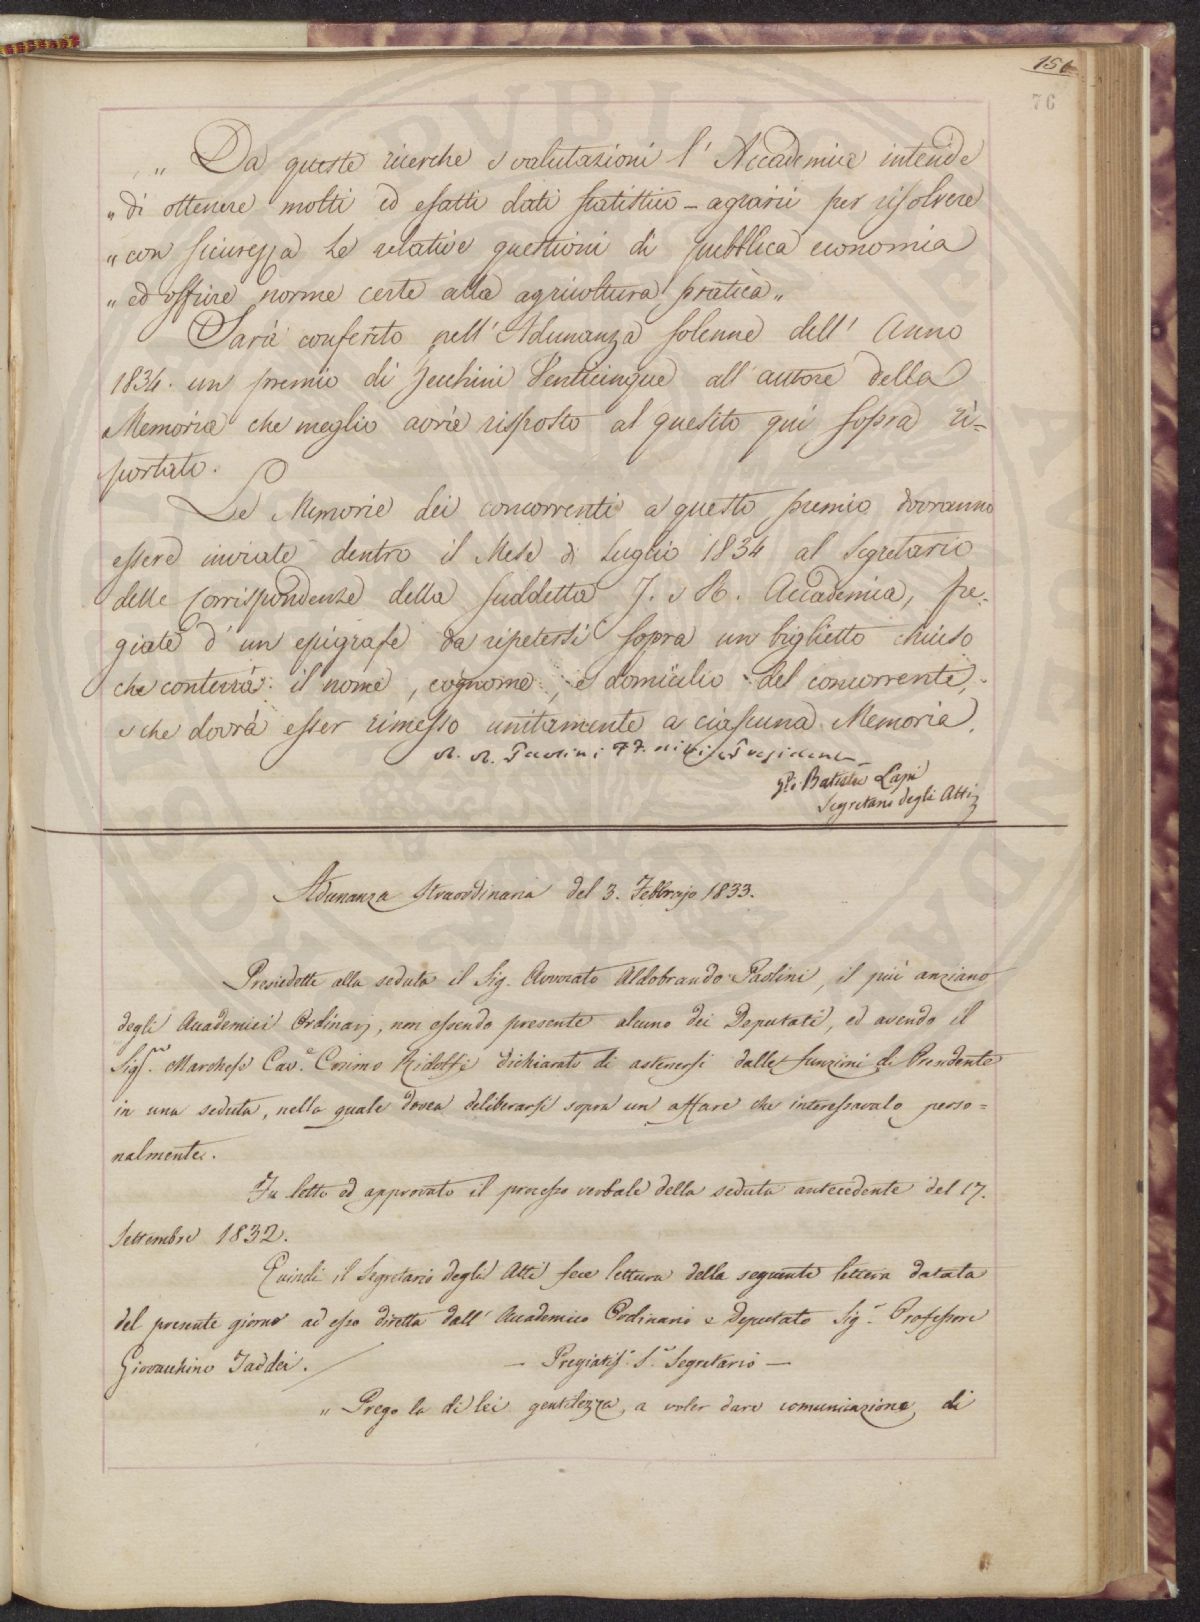 156
76
„ Da queste ricerche e valutazioni l' Accademia intende
„ di ottenere molti ed esatti dati statistico-agrarii per risolvere
„ con sicurezza le relative questioni di pubblica economia
„ ed offrire norme certe alla agricoltura pratica „
Sarà conferito nell' Adunanza solenne dell' Anno
1834. un premio di Zecchini Venticinque all' autore della
Memoria che meglio avrà risposto al quesito qui sopra ri=
portato.
Le Memorie dei concorrenti a questo premio dovranno
essere inviate dentro il Mese di Luglio 1834 al Segretario
delle Corrispondenze della suddetta I. e R. Accademia, fre-
giate d' un epigrafe da ripetersi sopra un biglietto chiuso
che conterrà il nome, cognome, e domicilio del concorrente,
e che dovrà esser rimesso unitamente a ciascuna Memoria.
A. A. Paolini FF. di Presidente
Gio. Batista Lapi
Segretario degli Atti
Adunanza Straordinaria del 3. Febbrajo 1833.
Presiedette alla seduta il Sig. Avvocato Aldobrando Paolini, il più anziano
degli Accademici Ordinarj, non essendo presente alcuno dei Deputati, ed avendo il
Sig. Marchese Cav.e Cosimo Ridolfi dichiarato di astenersi dalle funzioni di Presidente
in una seduta, nella quale dovea deliberarsi sopra un affare che interessavalo perso=
nalmente.
Fu letto ed approvato il processo verbale della seduta antecedente del 17.
Settembre 1832.
Quindi il Segretario degli Atti fece lettura della seguente lettera datata
del presente giorno ad esso diretta dall' Accademico Ordinario e Deputato Sig.r Professore
Giovacchino Taddei. — Pregiatis. S.r Segretario —
„ Prego la di lei gentilezza, a voler dare comunicazione di